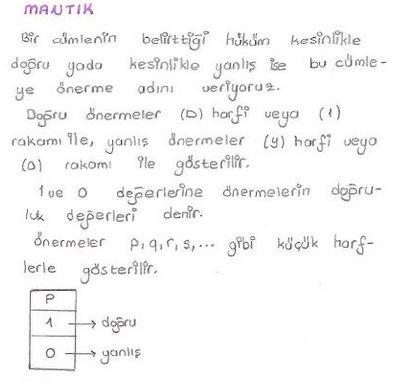 MANTIK
Bir cümlenin belirttiği hüküm kesinlikle
doğru yada kesinlikle yanlış ise bu cümle-
ye önerme adını veriyoruz.
Doğru önermeler (D) harfi veya (1)
rakamı ile, yanlış önermeler (y) harfi veya
(0) rakamı ile gösterilir.
1 ve 0 değerlerine önermelerin doğru-
luk değerleri denir.
önermeler p, q, r, s, ... gibi küçük harf-
lerle gösterilir.
P
1 → doğru
0 → yanlış